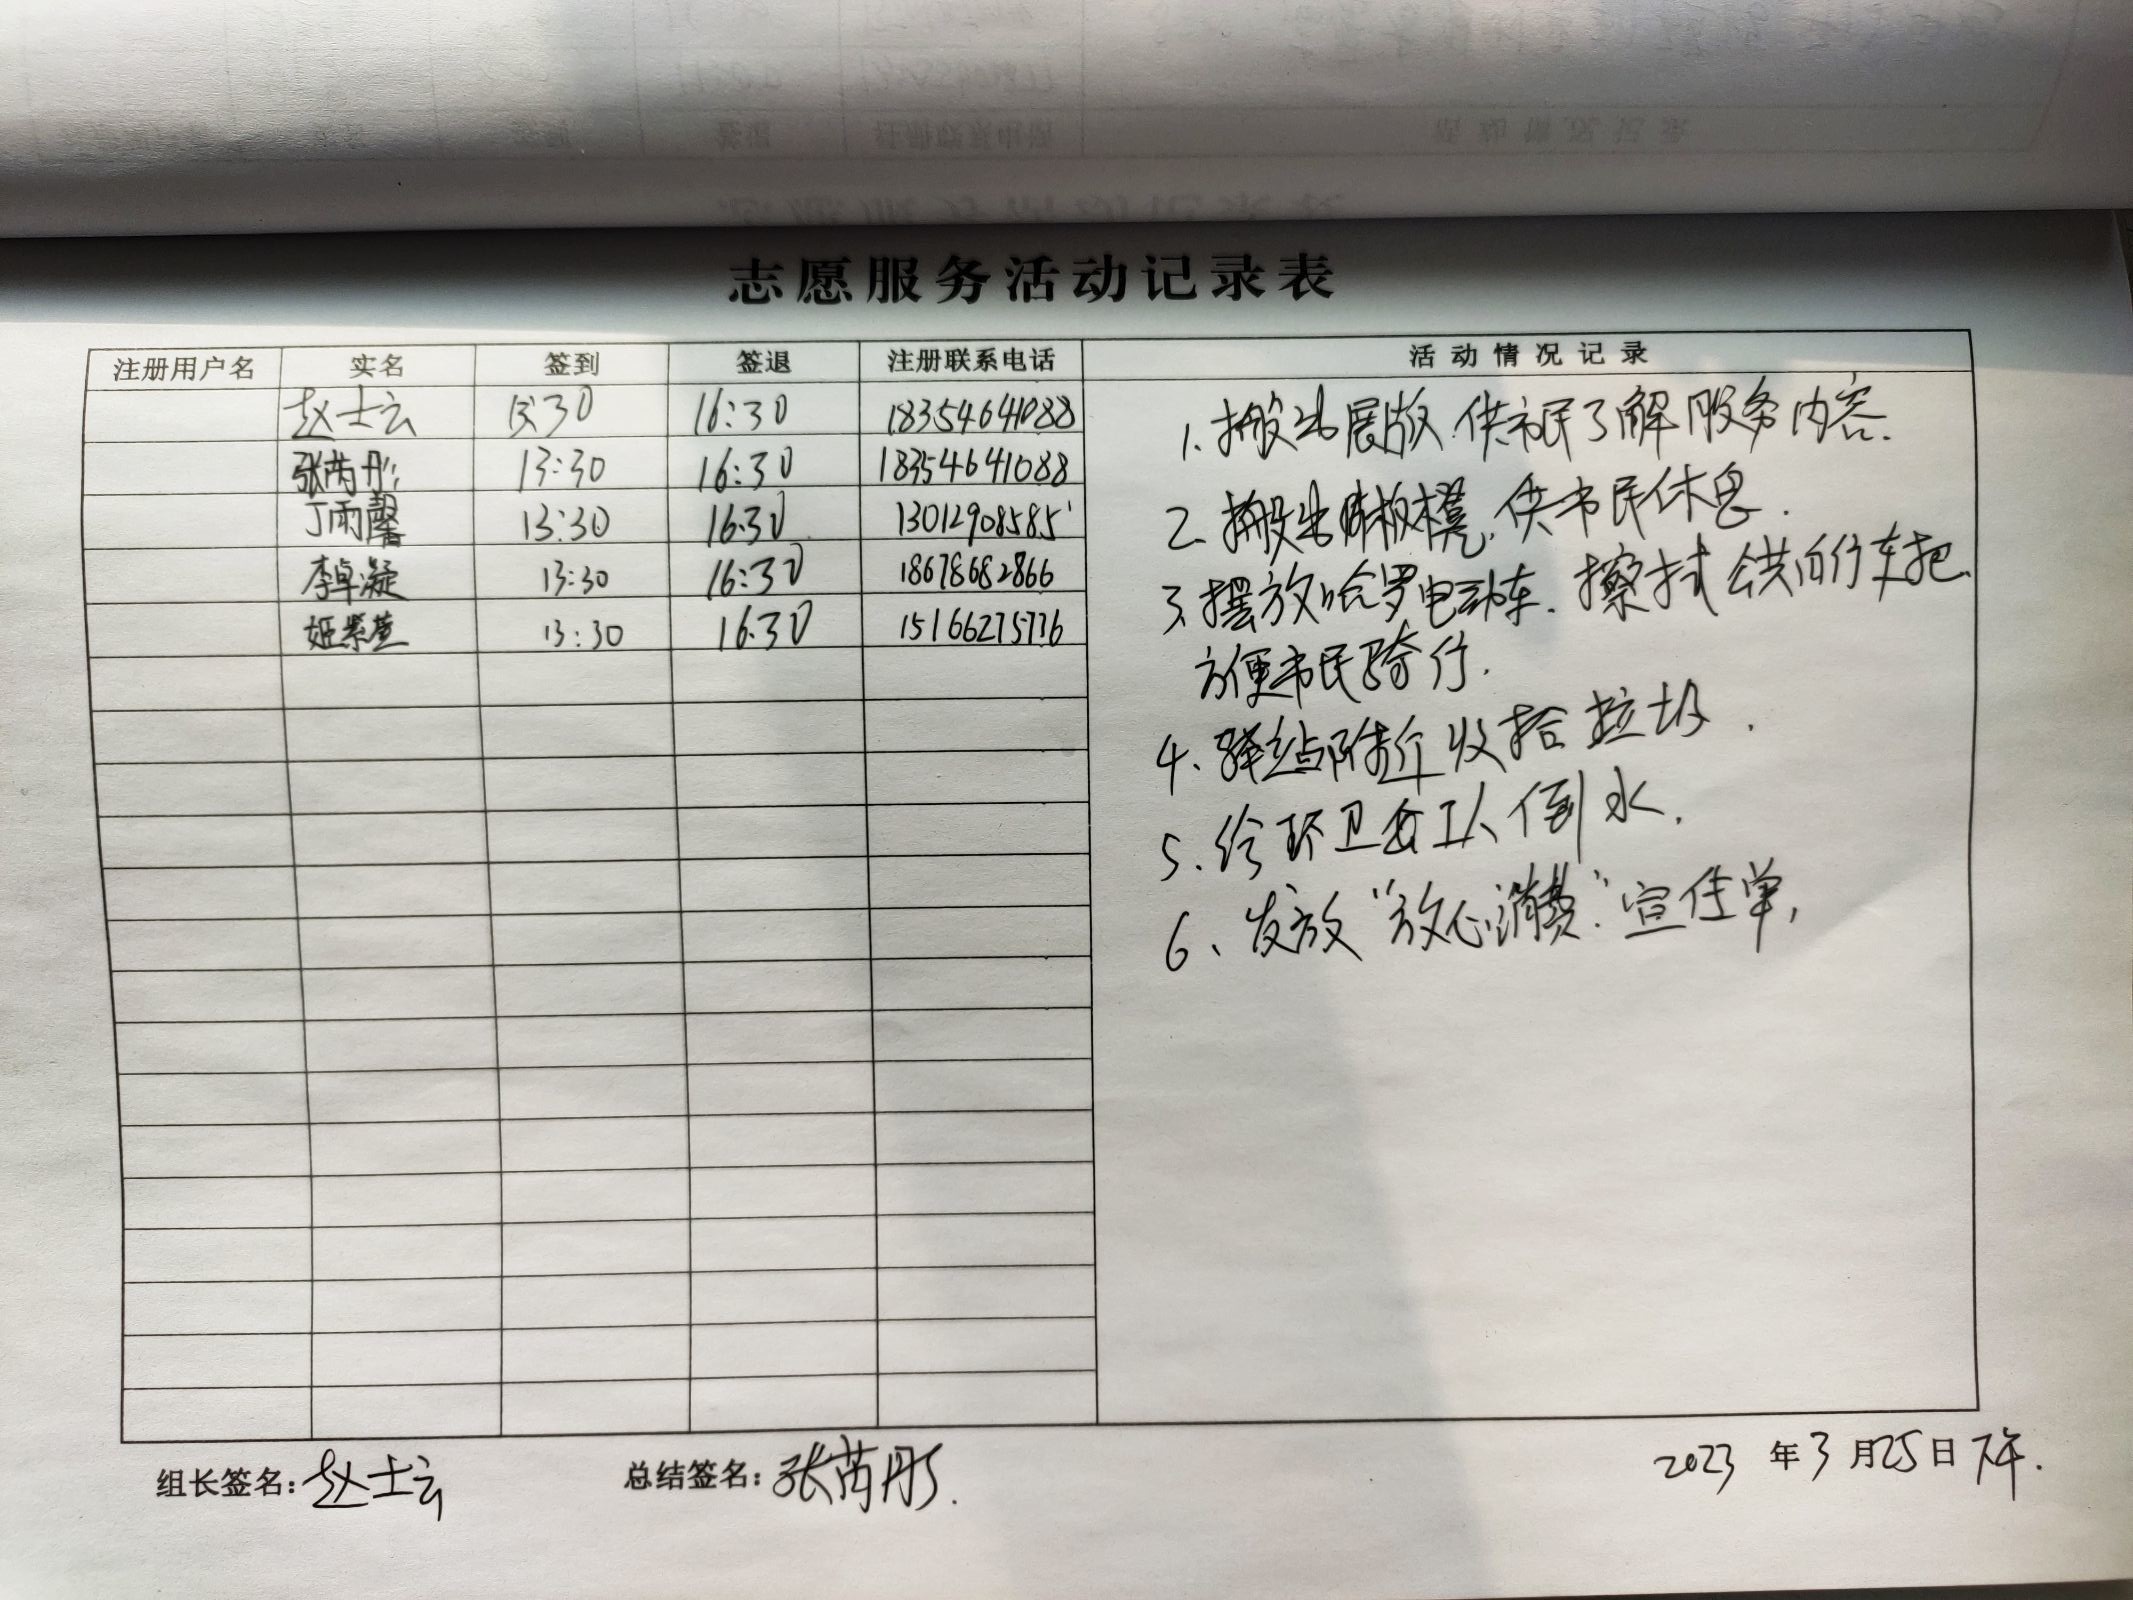 志愿服务活动记录表
注册用户名 实名 签到 签退 注册联系电话 活动情况记录
赵士云 13:30 16:30 18354641088
张芮彤 13:30 16:30 18354641088
丁雨馨 13:30 16:30 13012908585
李卓凝 13:30 16:30 18678682866
姬紫萱 13:30 16:30 15166275736
1. 搬出展版 供市民了解服务内容.
2. 搬出 板凳, 供市民休息.
3. 摆放哈罗电动车. 擦拭公共自行车把
方便市民骑行.
4. 驿站附近收拾垃圾.
5. 给环卫 工人倒水.
6、发放“放心消费”宣传单,
组长签名: 赵士云 总结签名: 张芮彤. 2023 年 3 月 25 日 下午.